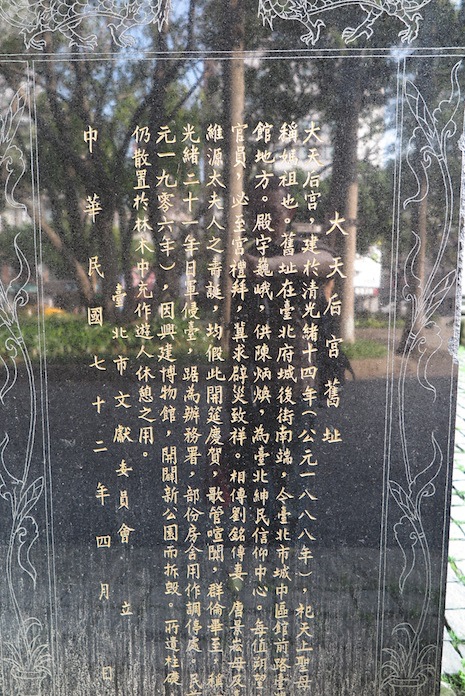 大天后宮舊址
大天后宮,建於清光緒十四年(公元一八八八年),祀天上聖母
稱媽祖也。舊址在臺北府城後街南端,今臺北市城中區館前路
館地方。殿宇巍峨,供陳炳煥,為臺北紳民信仰中心。每值朔望
官員,必至宮禮拜,冀求辟災致祥。相傳劉銘傳妻、唐景崧母及
維源太夫人之壽誕,均假此開筵慶賀,歌管喧闐,群倫畢至,稱
光緒二十一年日軍侵臺,踞為辦務署,部份房舍用作調停處。民
元一九零六年),因興建博物館,開闢新公園而拆毀。所遺柱
仍散置於林木中充作遊人休憩之用。
臺北市文獻委員會 立
中華民國七十二年四月 日